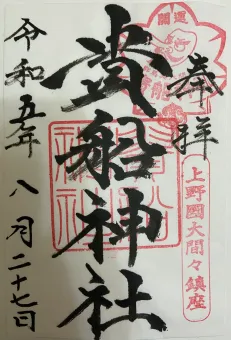 開運
奉拝
上野國大間々鎮座
貴船神社
令和五年八月二十七日